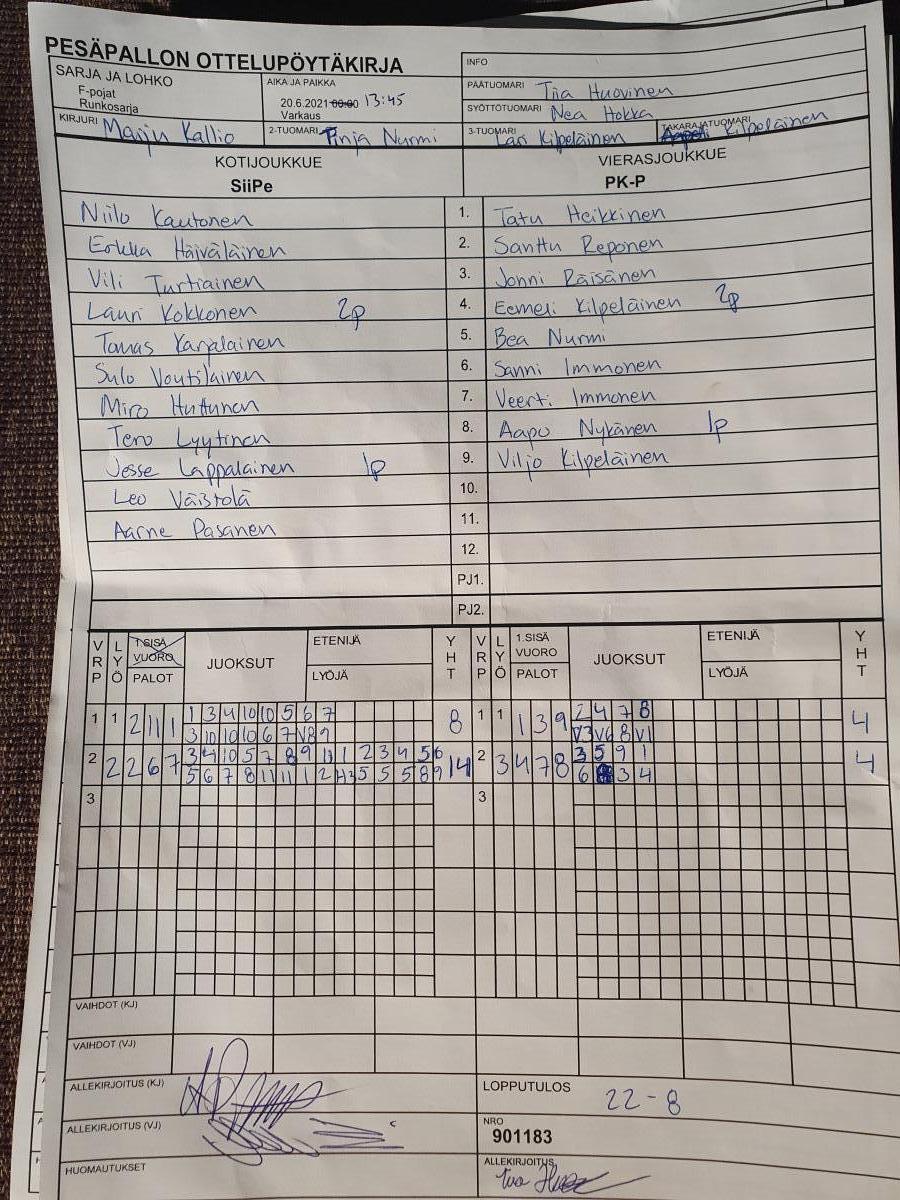 PESÄPALLON OTTELUPÖYTÄKIRJA
SARJA JA LOHKO
F-pojat
Runkosarja
AIKA JA PAIKKA
20.6.2021 00:00 13:45
Varkaus
INFO
PÄÄTUOMARI Tiia Huovinen
SYÖTTÖTUOMARI Nea Hokka
KIRJURI Marju Kallio
2-TUOMARI Pinja Nurmi
3-TUOMARI Lari Kilpeläinen
TAKARAJATUOMARI Kilpeläinen
KOTIJOUKKUE
SiiPe
VIERASJOUKKUE
PK-P
Niilo Kautonen 1. Tatu Heikkinen
Eukka Häiväläinen 2. Santtu Reponen
Vili Turtiainen 3. Jonni Räisänen
Lauri Kokkonen 2p 4. Eemeli Kilpeläinen 2p
Tomas Karjalainen 5. Bea Nurmi
Sulo Voutilainen 6. Sanni Immonen
Miro Huttunen 7. Veerti Immonen
Tero Lyytinen 8. Aapo Nykänen 1p
Jesse Lappalainen 1p 9. Viljo Kilpeläinen
Leo Väistölä 10.
Aarne Pasanen 11.
12.
PJ1.
PJ2.
VRP LYÖ 1.SISÄ VUORO PALOT JUOKSUT ETENIJÄ LYÖJÄ YHT VRP LYÖ 1.SISÄ VUORO PALOT JUOKSUT ETENIJÄ LYÖJÄ YHT
1 1 2 11 1 1 3 4 10 10 5 6 7 8 1 1 1 3 9 2 4 7 8 4
3 10 10 10 6 7 V8 9 V3 V6 8 V1
2 2 2 6 7 3 4 10 5 7 8 9 11 1 2 3 4 5 6 14 2 3 4 7 8 3 5 9 1 4
5 6 7 8 11 11 1 2 H3 5 5 5 8 9 6 3 4
3 3
VAIHDOT (KJ)
VAIHDOT (VJ)
ALLEKIRJOITUS (KJ)
LOPPUTULOS
22-8
ALLEKIRJOITUS (VJ)
NRO
901183
HUOMAUTUKSET
ALLEKIRJOITUS